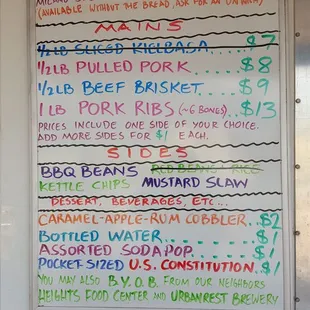 (AVAILABLE WITHOUT THE BREAD, ASK FOR AN
MAINS
1/2LB SLICED KIELBASA... $7
1/2LB PULLED PORK........ $8
1/2LB BEEF BRISKET...... $9
1LB PORK RIBS (~6 BONES)... $13
PRICES INCLUDE ONE SIDE OF YOUR CHOICE.
ADD MORE SIDES FOR $1 EACH.
SIDES
BBQ BEANS RED BEANS & RICE
KETTLE CHIPS MUSTARD SLAW
DESSERT, BEVERAGES, ETC...
CARAMEL-APPLE-RUM COBBLER.. $2
BOTTLED WATER........... $1
ASSORTED SODA POP....... $1
POCKET SIZED U.S. CONSTITUTION. $1
YOU MAY ALSO B.Y.O.B. FROM OUR NEIGHBORS
HEIGHTS FOOD CENTER AND URBANREST BREWERY